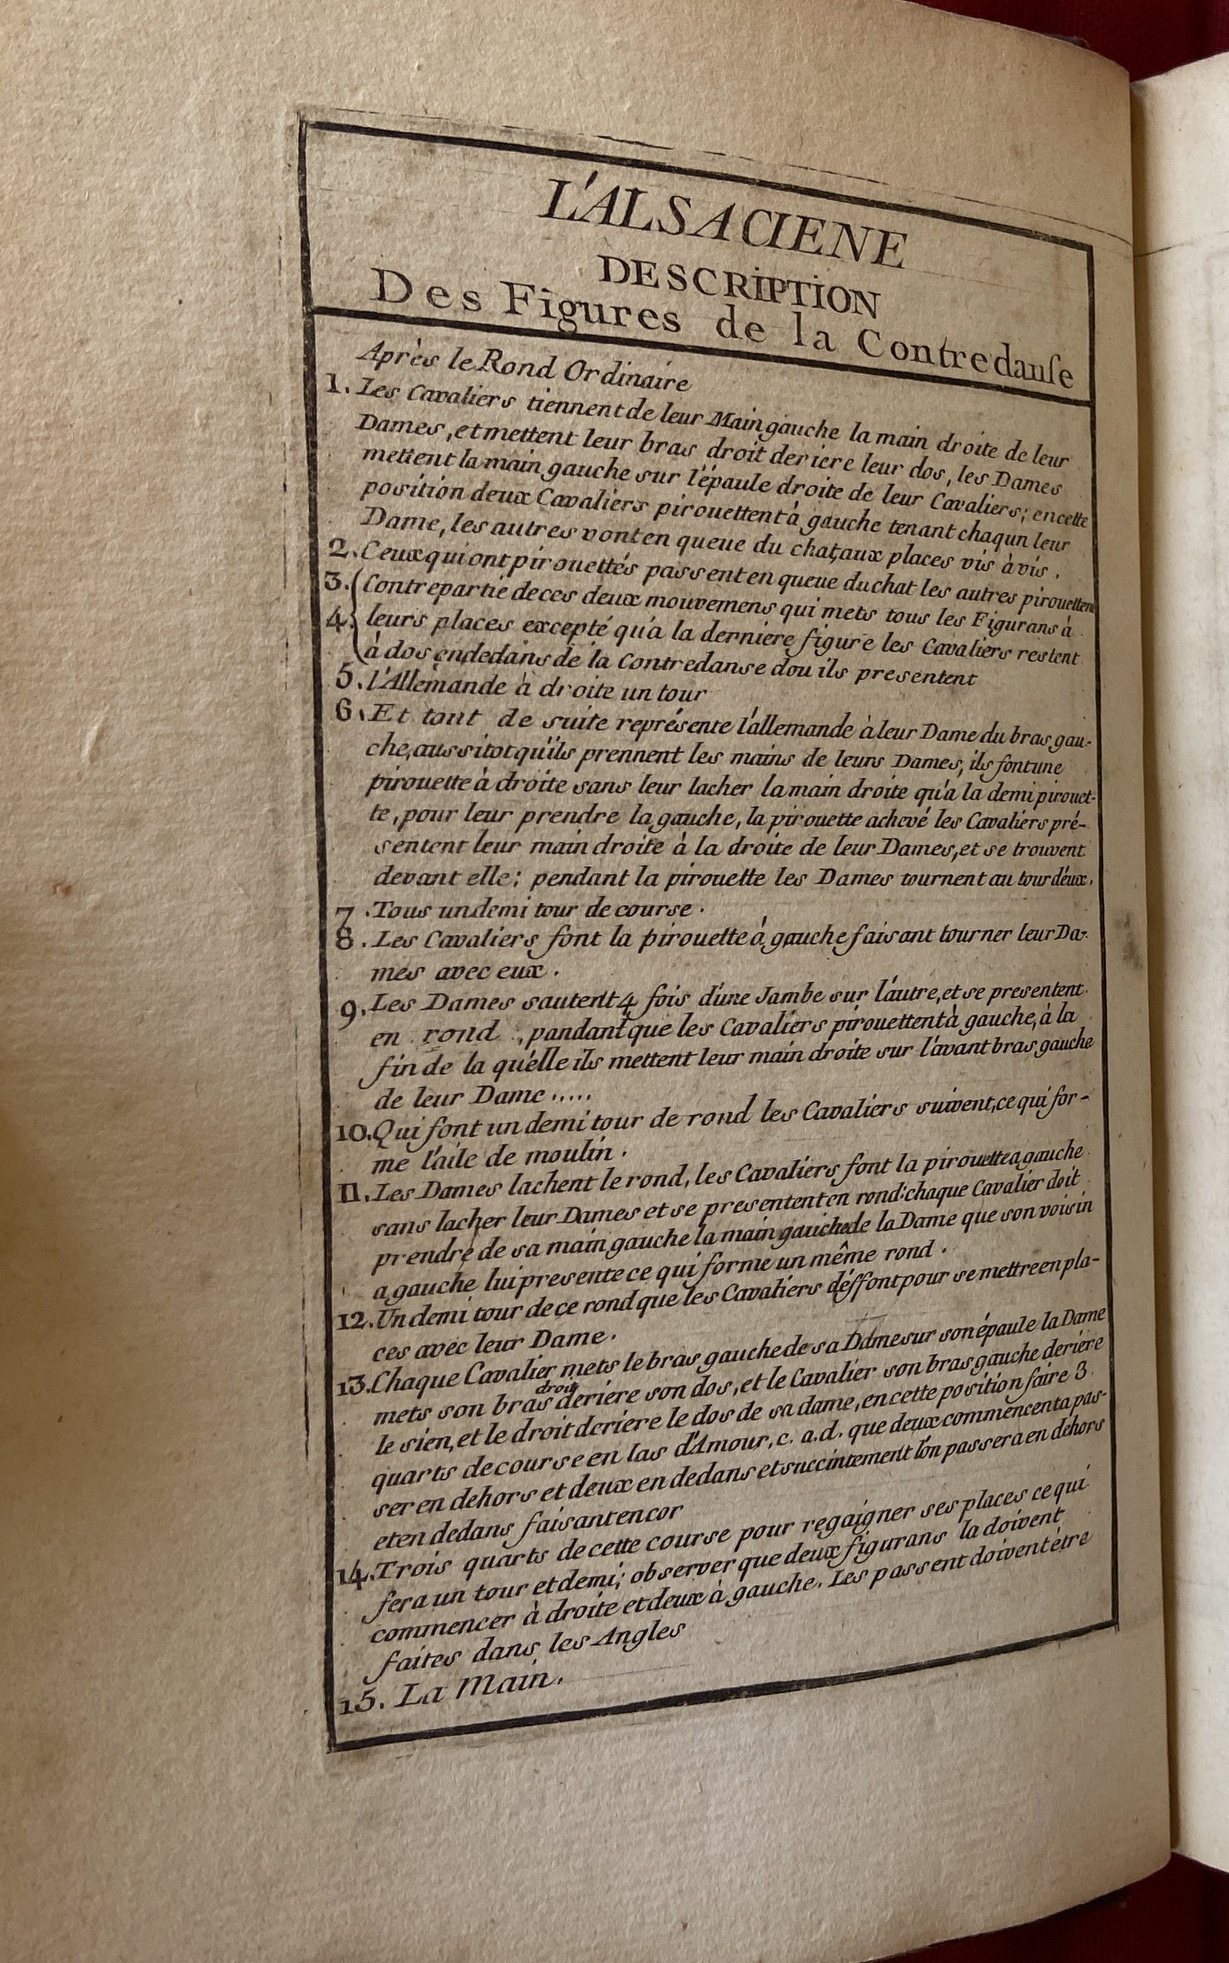 L'ALSACIENE
DESCRIPTION
Des Figures de la Contredanſe
Après le Rond Ordinaire
1. Les Cavaliers tiennent de leur Main gauche la main droite de leur
Dames, et mettent leur bras droit deriere leur dos, les Dames
mettent la main gauche sur l'épaule droite de leur Cavaliers; en cette
position deux Cavaliers pirouettent à gauche tenant chaqun leur
Dame, les autres vont en queue du chat, aux places vis à vis.
2. Ceux qui ont pirouettés passent en queue du chat les autres pirouettent
3. Contrepartie de ces deux mouvemens qui mets tous les Figurans à
4. leurs places excepté qu'a la derniere figure les Cavaliers restent
à dos en dedans de la Contredanse dou ils presentent
5. l'Allemande à droite un tour
6. Et tout de suite représente l'allemande à leur Dame du bras gau-
che, aussitot qu'ils prennent les mains de leurs Dames, ils font une
pirouette à droite sans leur lacher la main droite qu'a la demi pirouet-
te, pour leur prendre la gauche, la pirouette achevé les Cavaliers pré-
sentent leur main droite à la droite de leur Dames, et se trouvent
devant elle; pendant la pirouette les Dames tournent au tour d'eux.
7. Tous un demi tour de course.
8. Les Cavaliers font la pirouette à gauche faisant tourner leur Da-
mes avec eux.
9. Les Dames sautent 4 fois d'une Jambe sur l'autre, et se presentent
en rond, pandant que les Cavaliers pirouettent à gauche, à la
fin de la qu'elle ils mettent leur main droite sur l'avant bras gauche
de leur Dame.....
10. Qui font un demi tour de rond les Cavaliers suivent, ce qui for-
me l'aile de moulin.
11. Les Dames lachent le rond, les Cavaliers font la pirouette a gauche
sans lacher leur Dames et se presentent en rond: chaque Cavalier doit
prendre de sa main gauche la main gauche de la Dame que son voisin
a gauche lui presente ce qui forme un même rond.
12. Un demi tour de ce rond que les Cavaliers déffont pour se mettre en pla-
ces avec leur Dame.
13. Chaque Cavalier mets le bras gauche de sa Dame sur son épaule la Dame
mets son bras droit deriere son dos, et le Cavalier son bras gauche deriere
le sien, et le droit deriere le dos de sa dame, en cette position faire 3
quarts de course en las d'Amour, c. a. d. que deux commencent a pas-
ser en dehors et deux en dedans et succintement l'on passera en dehors
et en dedans faisant encor
14. Trois quarts de cette course pour regaigner ses places ce qui
fera un tour et demi; observer que deux figurans la doivent
commencer à droite et deux à gauche. Les pas sent doivent être
faites dans les Angles
15. La Main.